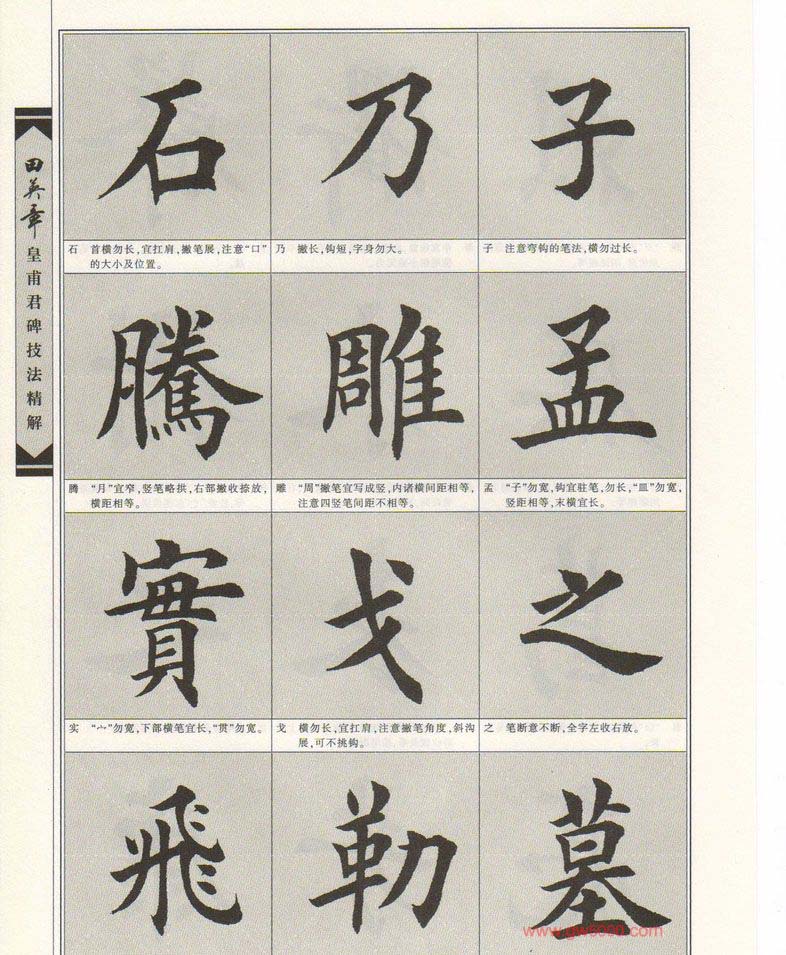 田英章
皇甫君碑技法精解
石
乃
子
石 首横勿长，宜扛肩，撇笔展，注意“口”
的大小及位置。
乃 撇长，钩短，字身勿大。
子 注意弯钩的笔法，横勿过长。
騰
雕
孟
腾 “月”宜窄，竖笔略拱，右部撇收捺放，
横距相等。
雕 “周”撇笔宜写成竖，内诸横间距相等，
注意四竖笔间距不相等。
孟 “子”勿宽，钩宜驻笔，勿长，“皿”勿宽，
竖距相等，末横宜长。
實
戈
之
实 “宀”勿宽，下部横笔宜长，“贯”勿宽。
戈 横勿长，宜扛肩，注意撇笔角度，斜沟
展，可不挑钩。
之 笔断意不断，全字左收右放。
飛
勒
墓